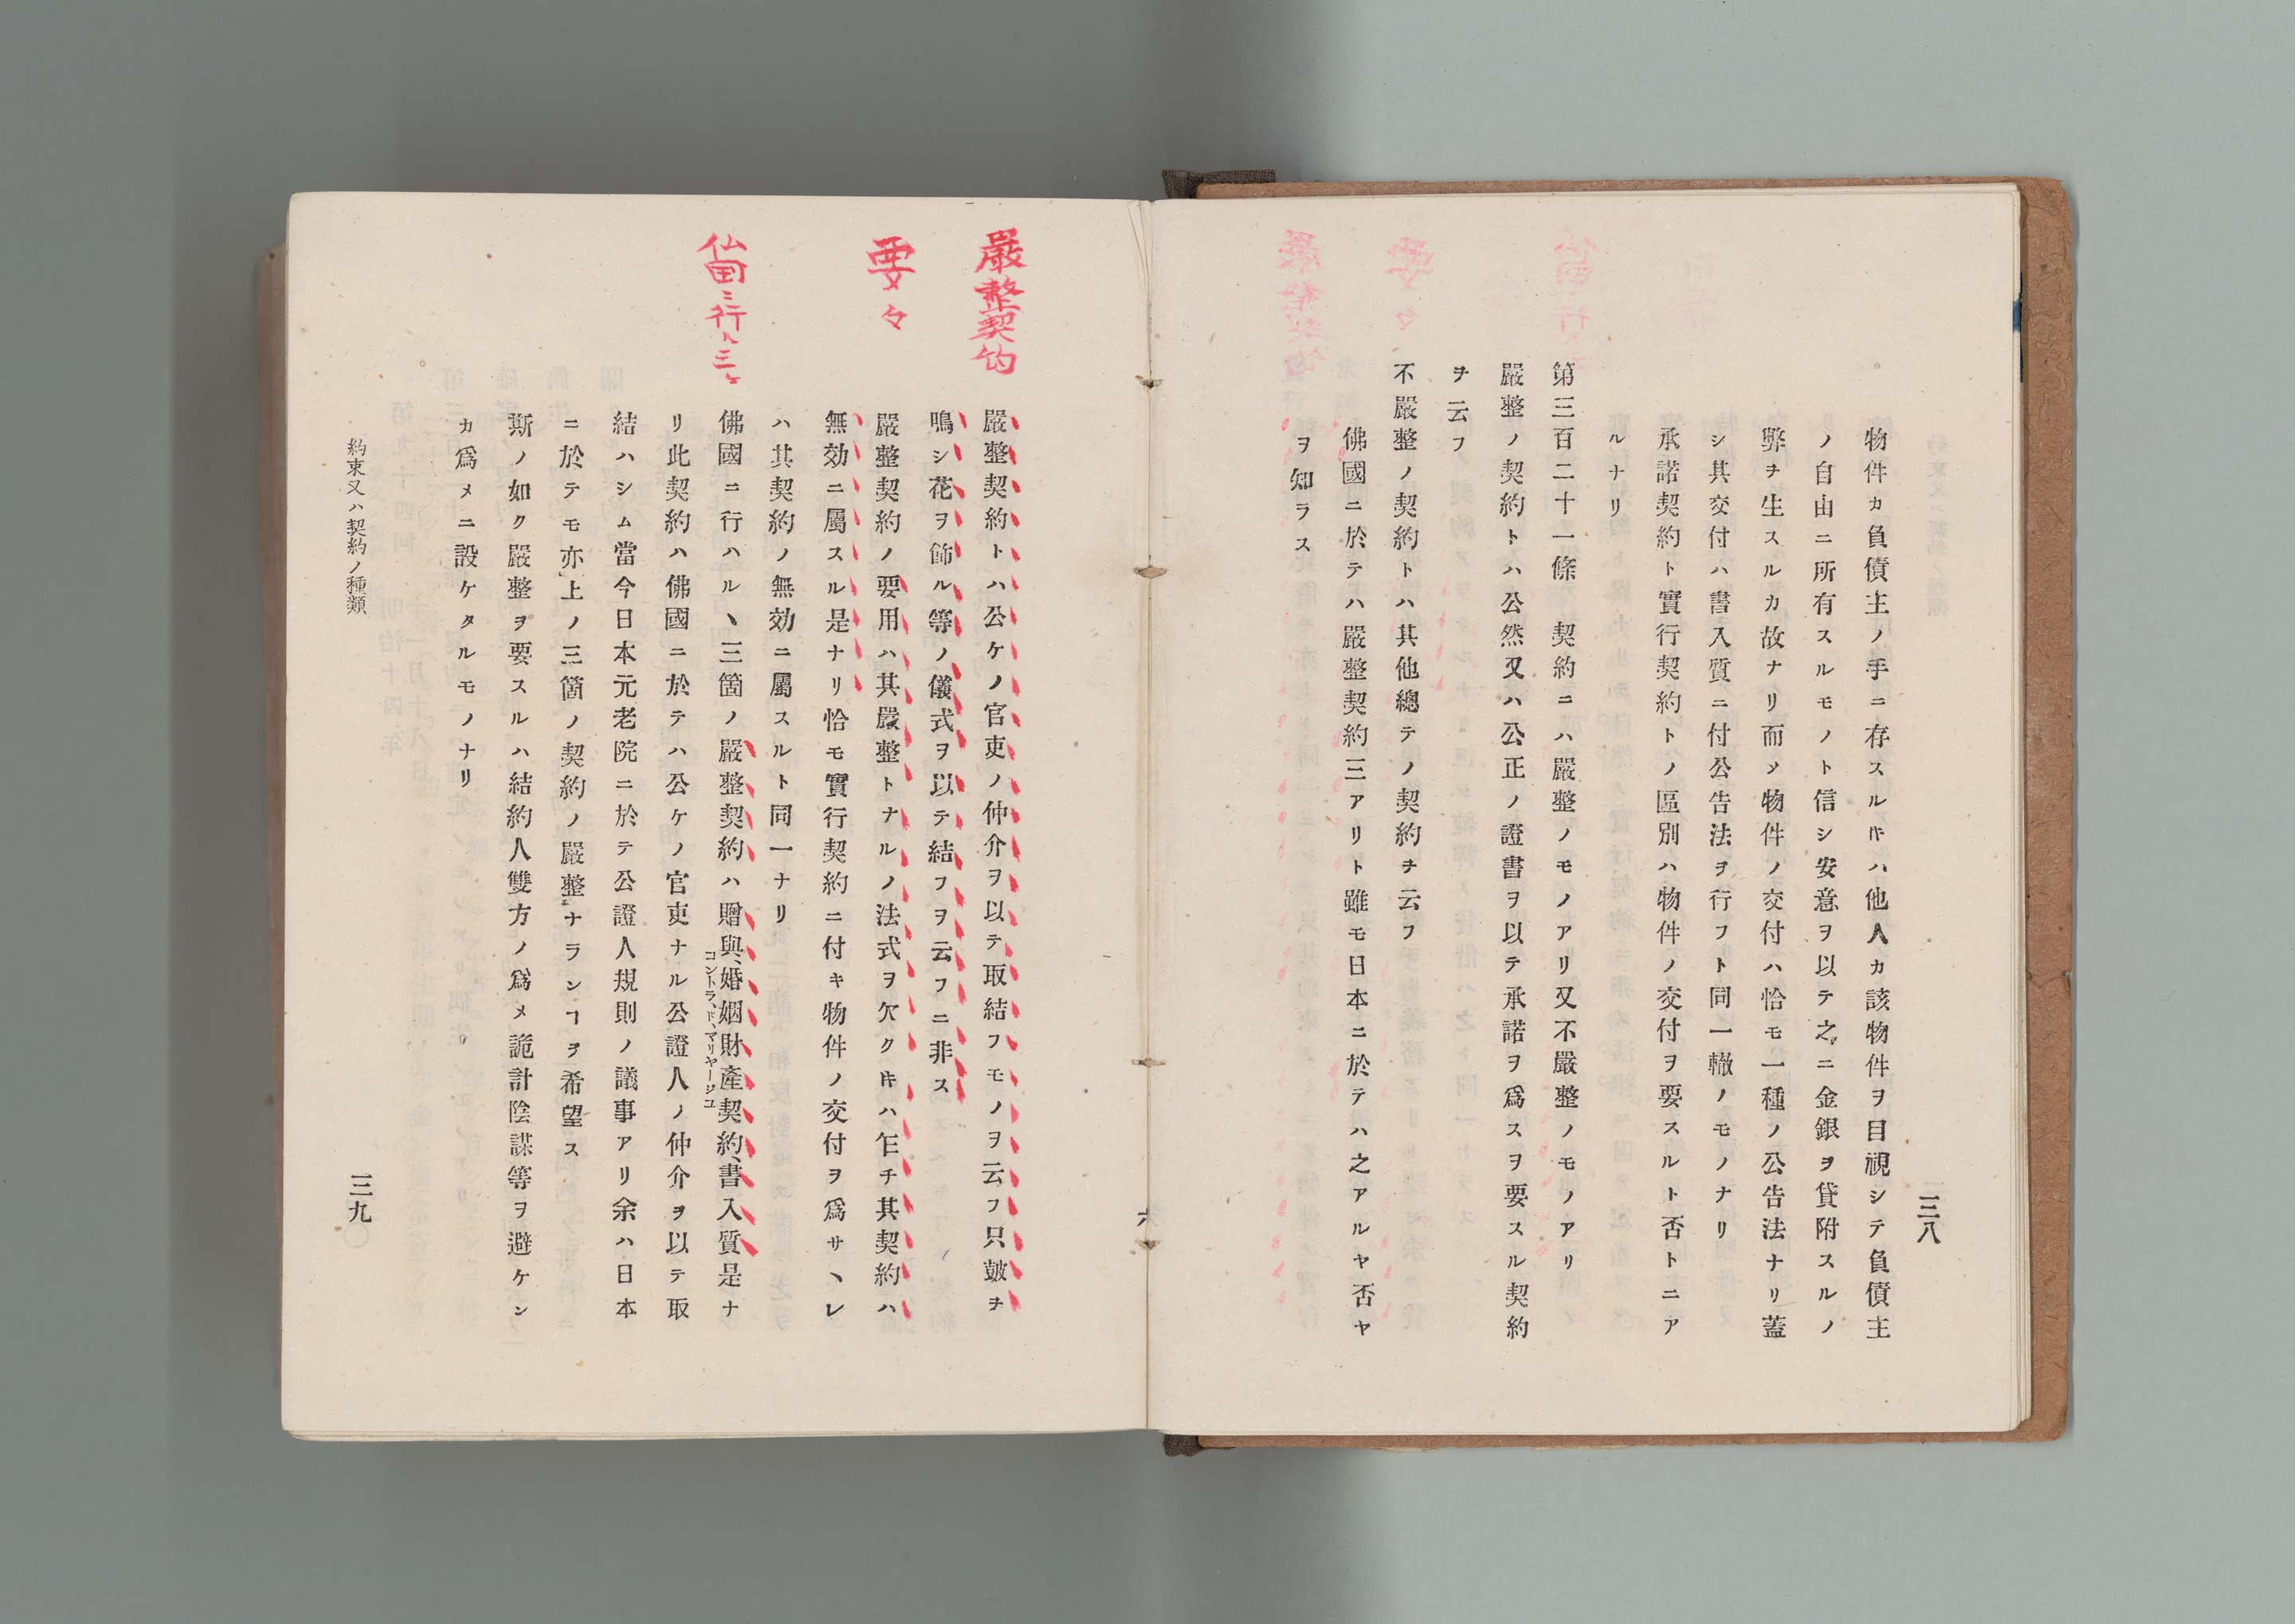 三八
物件カ負債主ノ手ニ存スルキハ他人カ該物件ヲ目視シテ負債主
ノ自由ニ所有スルモノト信シ安意ヲ以テ之ニ金銀ヲ貸附スルノ
弊ヲ生スルカ故ナリ而メ物件ノ交付ハ恰モ一種ノ公告法ナリ蓋
シ其交付ハ書入質ニ付公告法ヲ行フト同一轍ノモノナリ
承諾契約ト實行契約トノ區別ハ物件ノ交付ヲ要スルト否トニア
ルナリ
第三百二十一條　契約ニハ嚴整ノモノアリ又不嚴整ノモノアリ
嚴整ノ契約トハ公然又ハ公正ノ證書ヲ以テ承諾ヲ爲スヲ要スル契約
ヲ云フ
不嚴整ノ契約トハ其他總テノ契約ヲ云フ
佛國ニ於テハ嚴整契約三アリト雖モ日本ニ於テハ之アルヤ否ヤ
ヲ知ラス
嚴整契約
要々
仏国ニ行ハ三ヶ
嚴整契約トハ公ケノ官吏ノ仲介ヲ以テ取結フモノヲ云フ只皷ヲ
鳴シ花ヲ飾ル等ノ儀式ヲ以テ結フヲ云フニ非ス
嚴整契約ノ要用ハ其嚴整トナルノ法式ヲ欠クキハ乍チ其契約ハ
無効ニ屬スル是ナリ恰モ實行契約ニ付キ物件ノ交付ヲ爲サヽレ
ハ其契約ノ無効ニ屬スルト同一ナリ
佛國ニ行ハルヽ三箇ノ嚴整契約ハ贈與、婚姻財產契約、書入質是ナ
コントラ、ド、マリヤージユ
リ此契約ハ佛國ニ於テハ公ケノ官吏ナル公證人ノ仲介ヲ以テ取
結ハシム當今日本元老院ニ於テ公證人規則ノ議事アリ余ハ日本
ニ於テモ亦上ノ三箇ノ契約ノ嚴整ナランヿヲ希望ス
斯ノ如ク嚴整ヲ要スルハ結約人雙方ノ爲メ詭計陰謀等ヲ避ケシ
カ爲メニ設ケタルモノナリ
約束又ハ契約ノ種類
三九